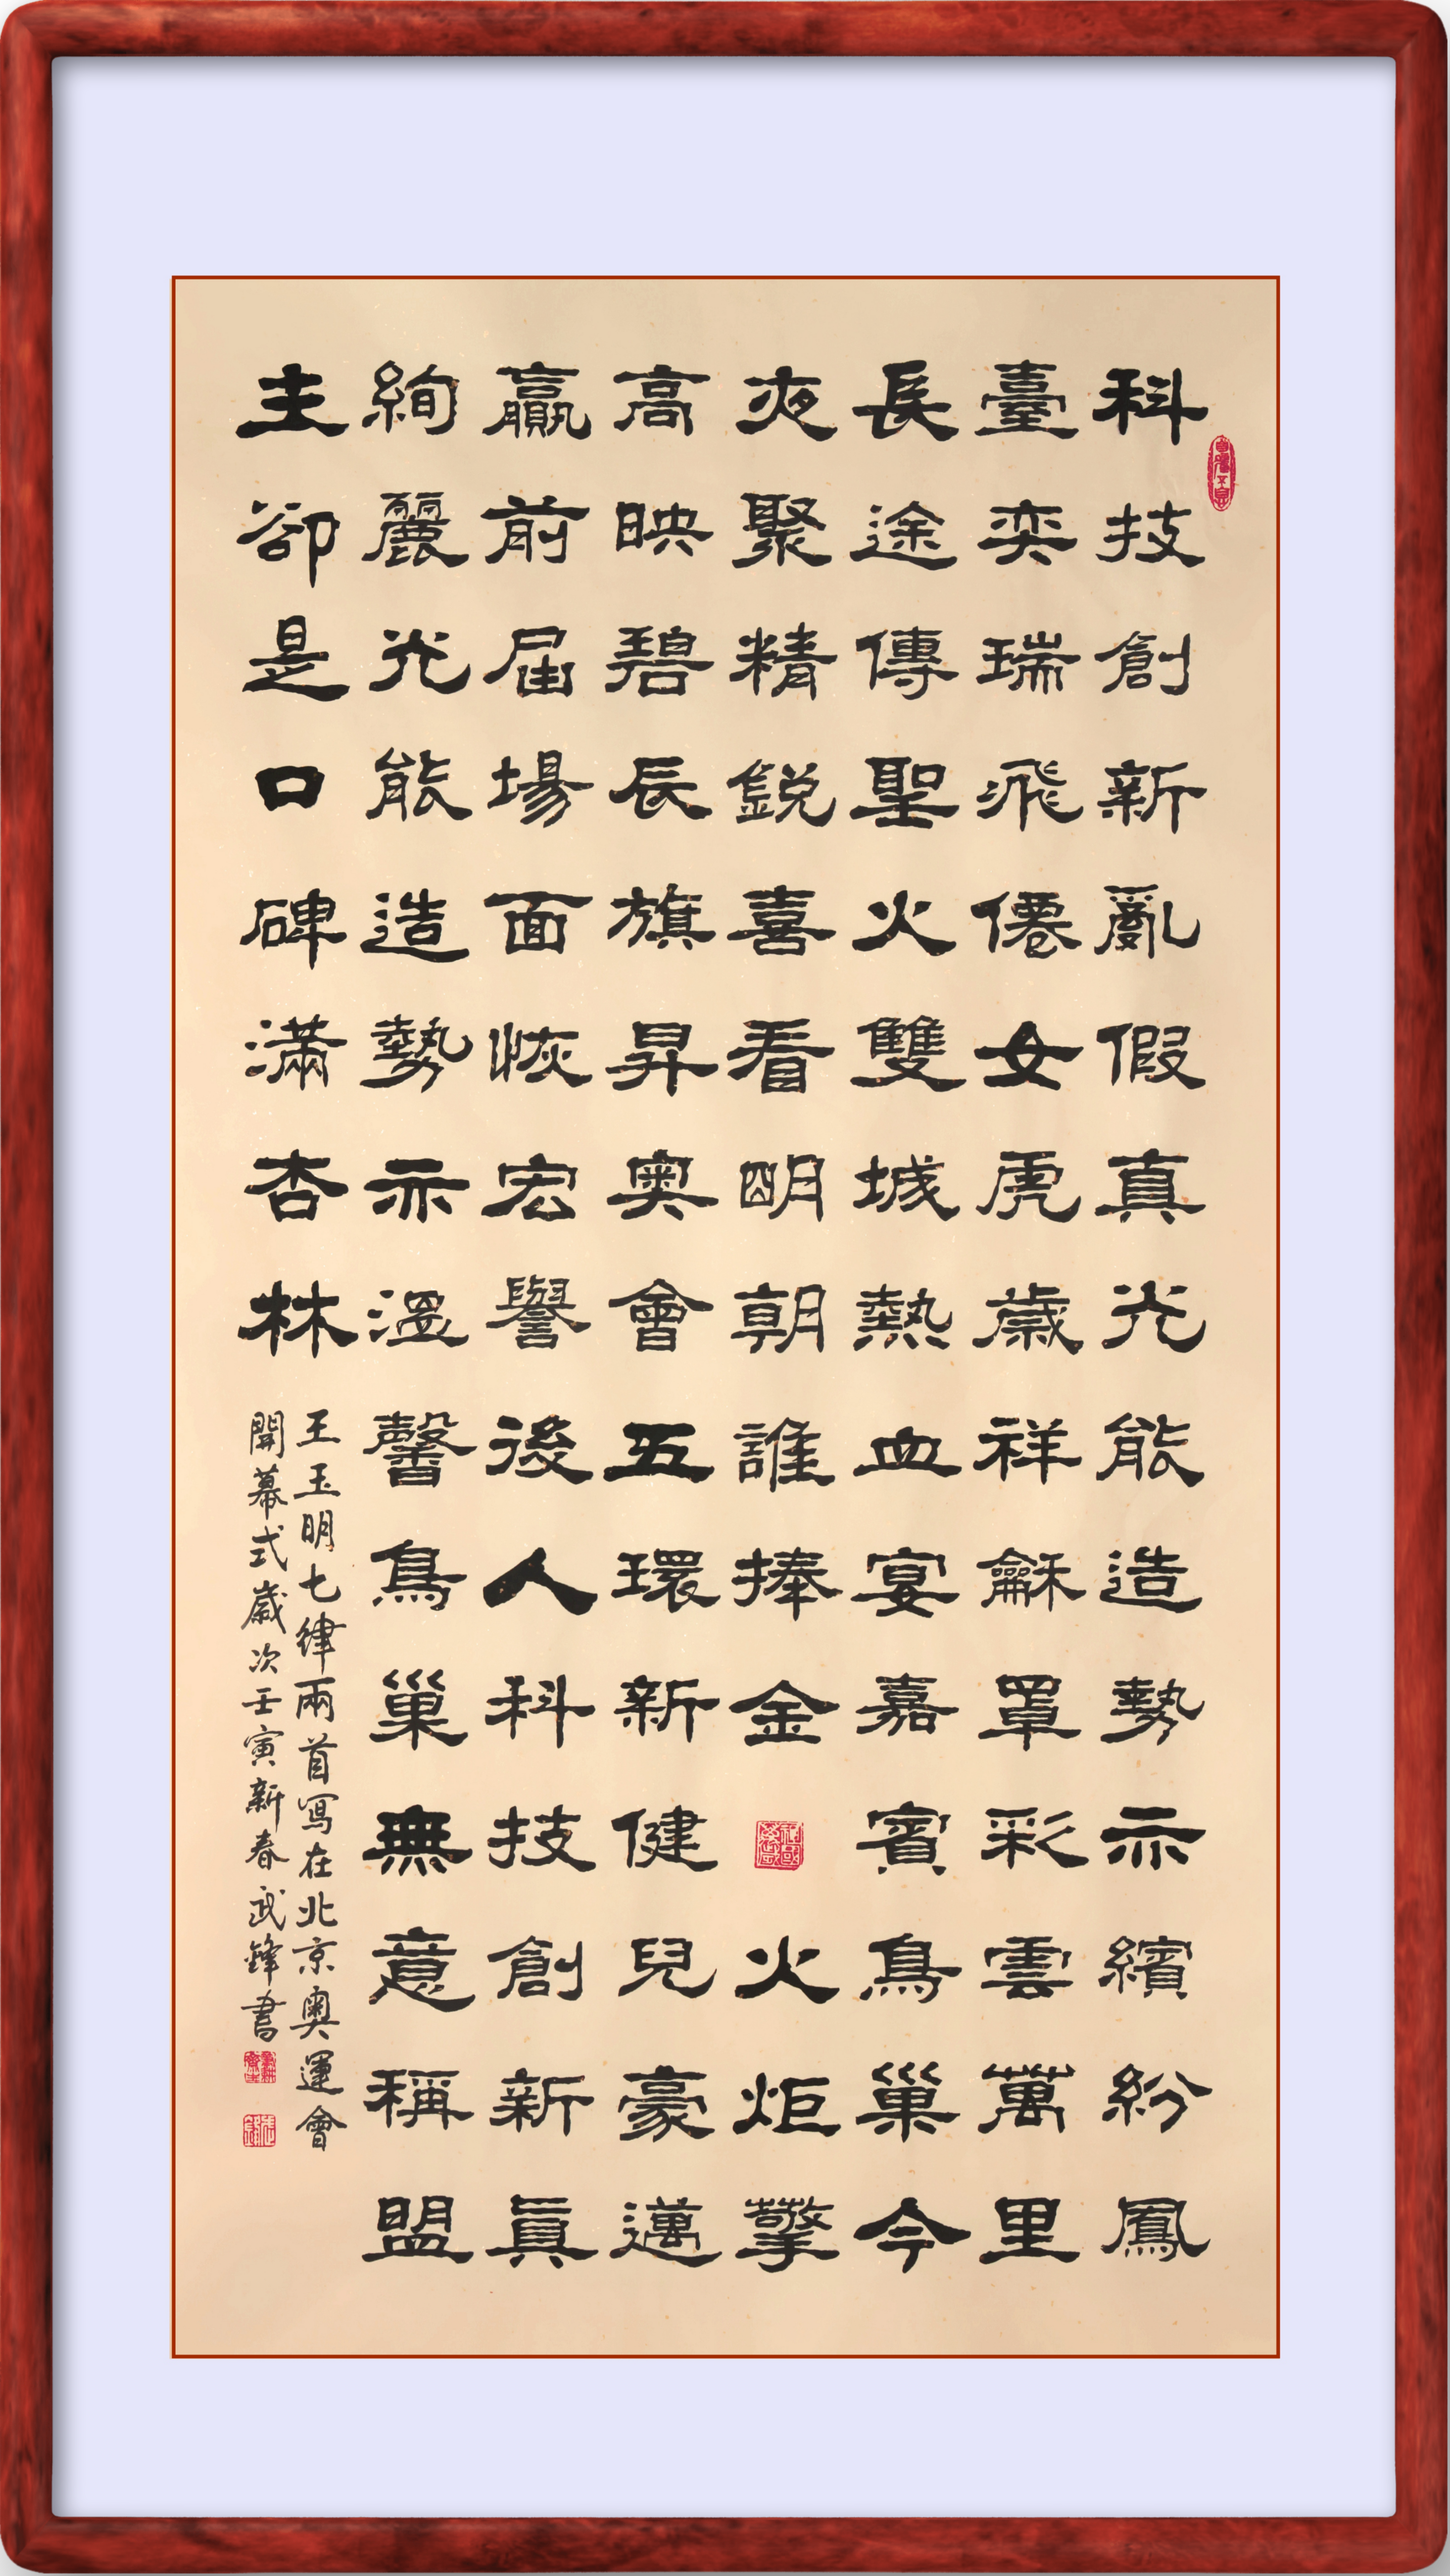 科技創新亂假真光能造勢示繽紛鳳
臺奕瑞飛僊女虎歲祥龢罩彩雲萬里
長途傳聖火雙城熱血宴嘉賓鳥巢今
夜聚精銳喜看明朝誰捧金火炬擎
高映碧辰旗昇奧會五環新健兒豪邁
贏前屆場面恢宏譽後人科技創新眞
絢麗光能造勢示溫馨鳥巢無意稱盟
主卻是口碑滿杏林
王玉明七律兩首寫在北京奧運會
開幕式歲次壬寅新春武鋒書